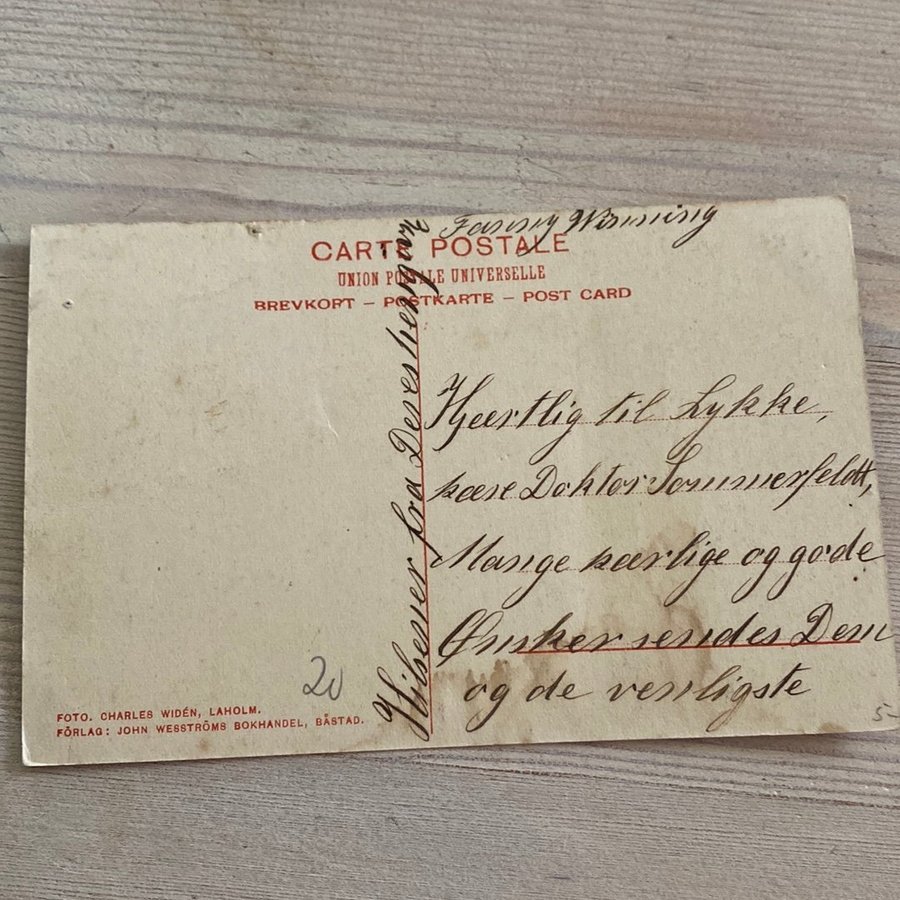 CARTE POSTALE
UNION POSTALE UNIVERSELLE
BREVKORT – POSTKARTE – POST CARD
Hjertlig til Lykke,
kære Doktor Sommerfeldt,
Mange kærlige og gode
Ønsker sendes Dem
og de venligste
Hilsener fra Deres hengivne
Fanny
FOTO. CHARLES WIDÉN, LAHOLM.
FÖRLAG: JOHN WESSTRÖMS BOKHANDEL, BÅSTAD.
20
5-